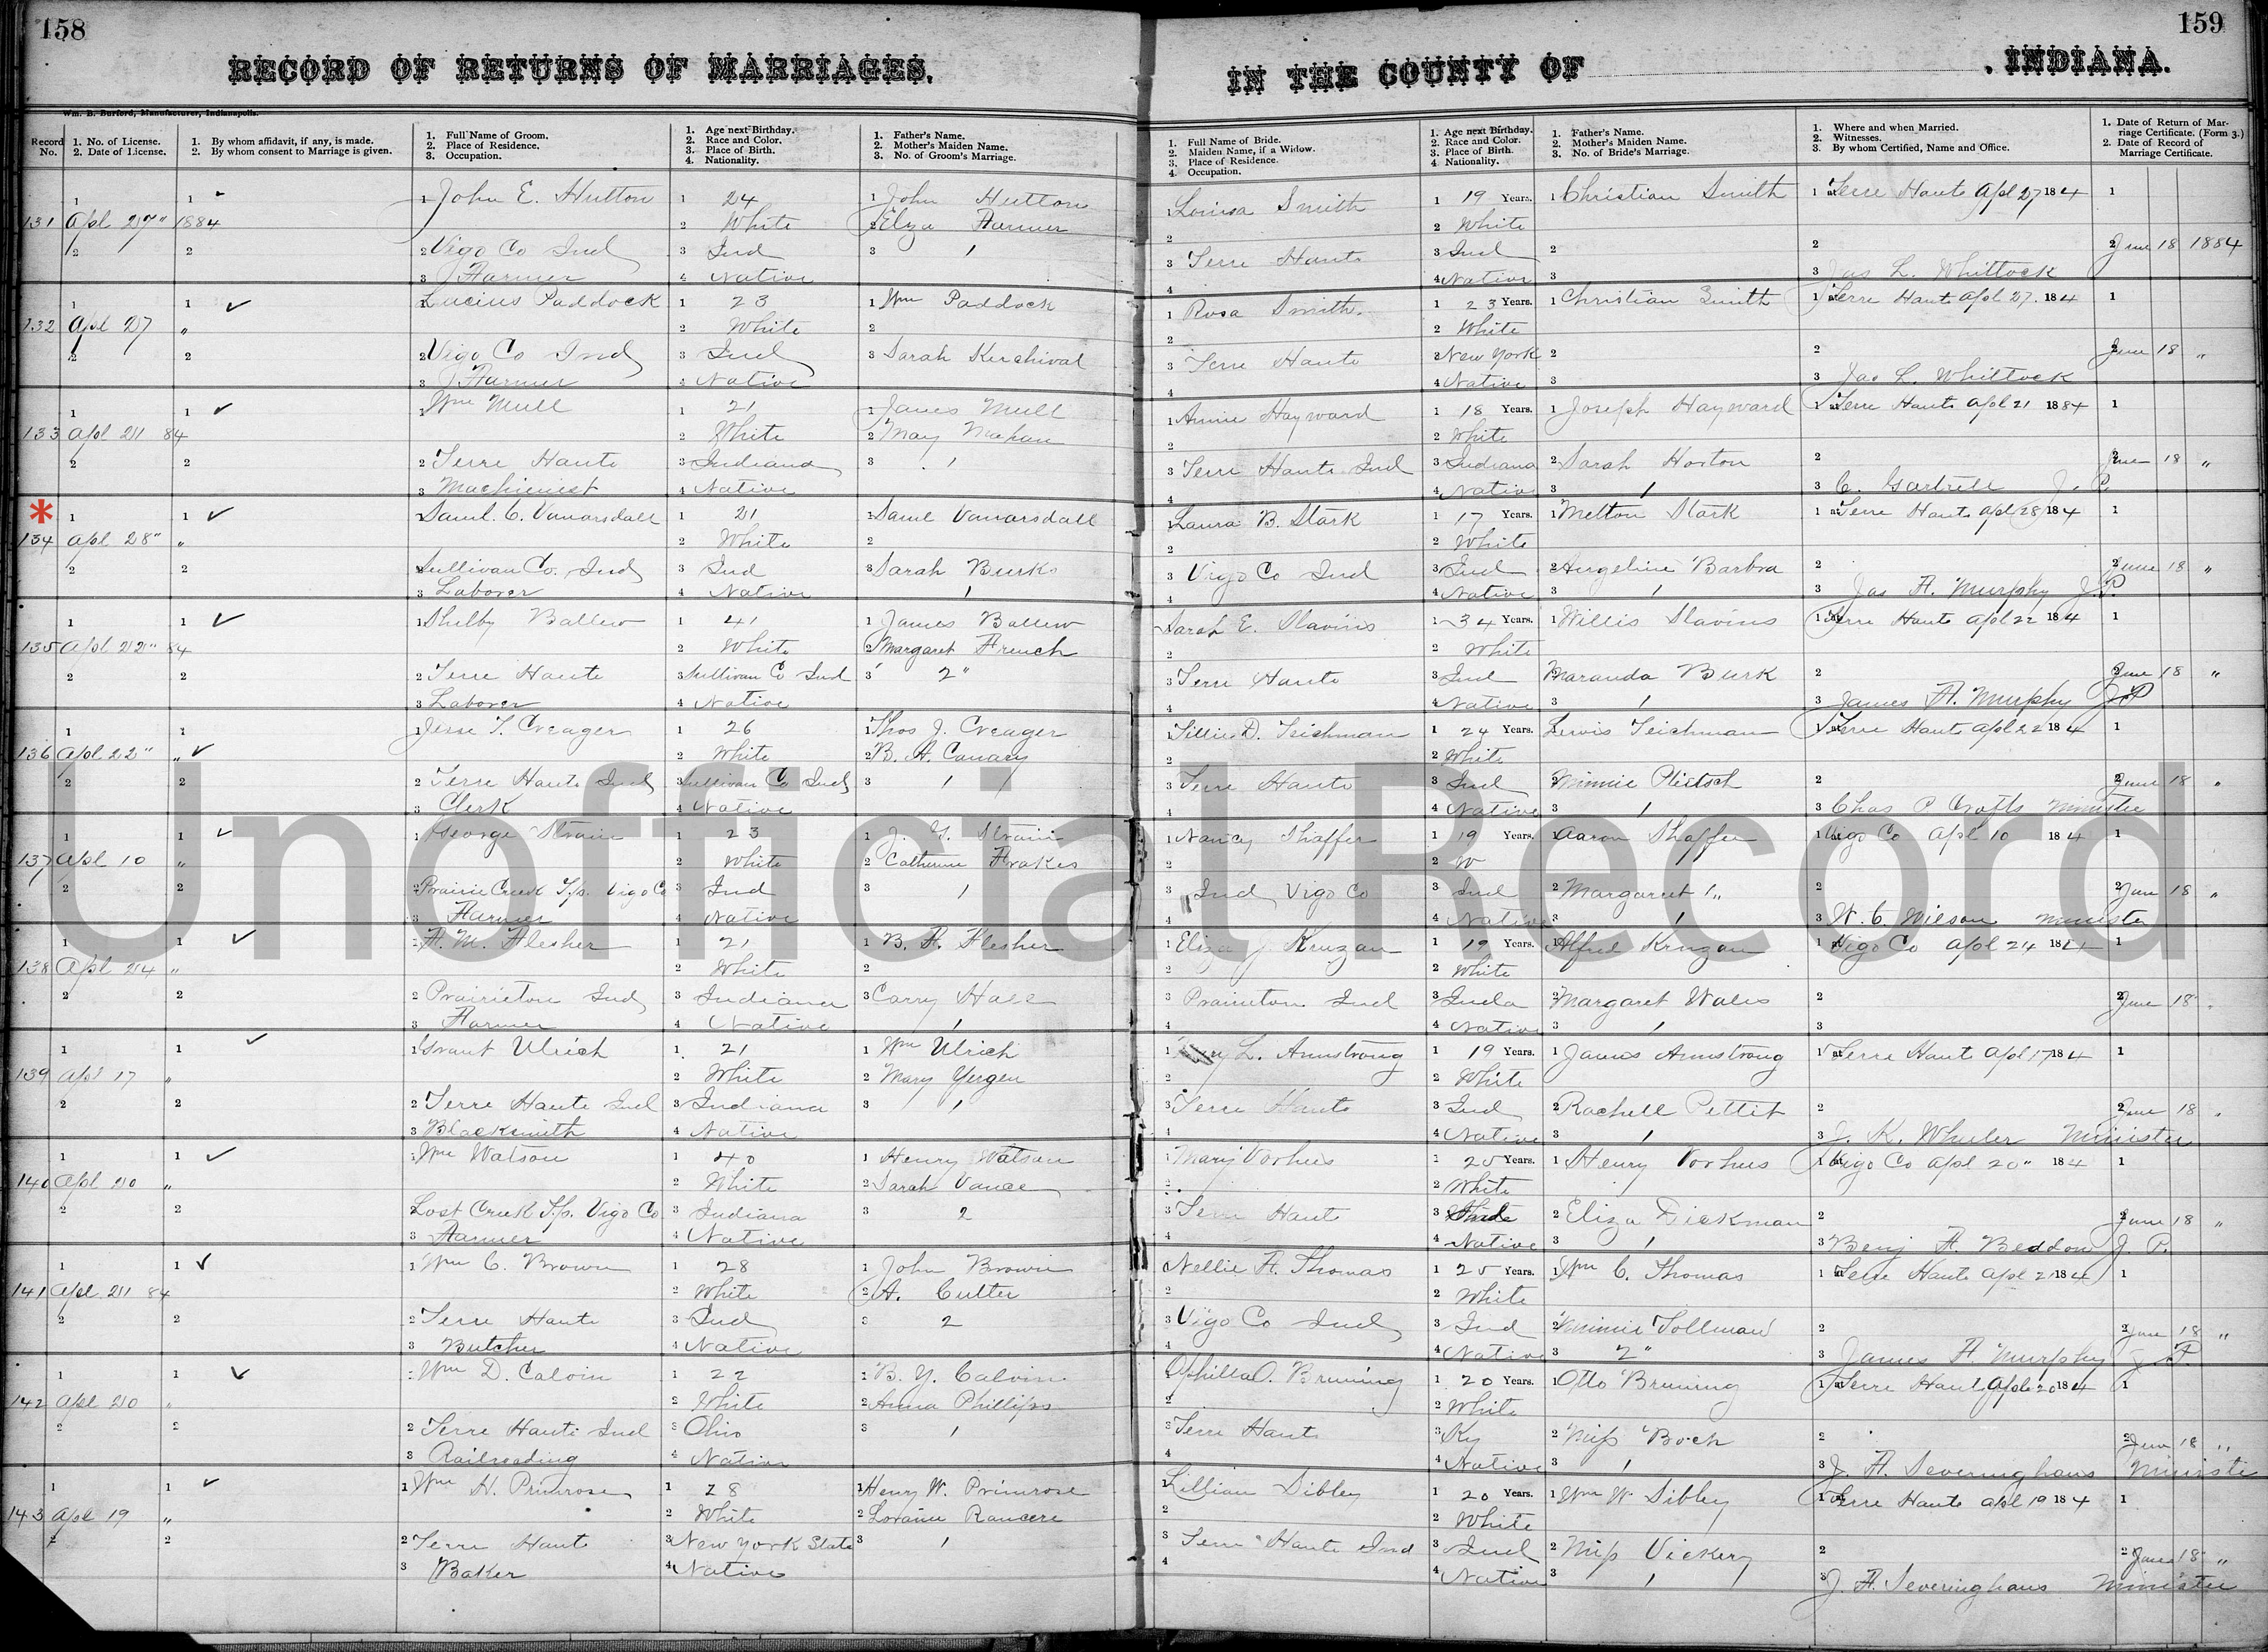 158
159
RECORD OF RETURNS OF MARRIAGES,
IN THE COUNTY OF , INDIANA.
Wm. B. Burford, Manufacturer, Indianapolis.
Record No.
1. No. of License.
2. Date of License.
1. By whom affidavit, if any, is made.
2. By whom consent to Marriage is given.
1. Full Name of Groom.
2. Place of Residence.
3. Occupation.
1. Age next Birthday.
2. Race and Color.
3. Place of Birth.
4. Nationality.
1. Father's Name.
2. Mother's Maiden Name.
3. No. of Groom's Marriage.
1. Full Name of Bride.
2. Maiden Name, if a Widow.
3. Place of Residence.
4. Occupation.
1. Age next Birthday.
2. Race and Color.
3. Place of Birth.
4. Nationality.
1. Father's Name.
2. Mother's Maiden Name.
3. No. of Bride's Marriage.
1. Where and when Married.
2. Witnesses.
3. By whom Certified, Name and Office.
1. Date of Return of Marriage Certificate. (Form 3.)
2. Date of Record of Marriage Certificate.
1 1 1 John E. Hutton 1 24 1 John Hutton 1 Louisa Smith 1 19 Years. 1 Christian Smith 1 at Terre Haute Apl 27 1884 1
131 Apl 27" 1884 2 White 2 Elza Farmer 2 2 White
2 2 2 Vigo Co Ind 3 Ind 3 1 3 Terre Haute 3 Ind 2 2 2 June 18 1884
3 Farmer 4 Native 4 4 Native 3 3 Jas L. Whitlock
1 1 1 Lucius Paddock 1 23 1 Wm Paddock 1 Rosa Smith 1 23 Years. 1 Christian Smith 1 at Terre Haute Apl 27 1884 1
132 Apl 27 " 2 White 2 2 2 White
2 2 2 Vigo Co Ind 3 Ind 3 Sarah Kerchival 3 Terre Haute New York 2 2 2 June 18 "
3 Farmer 4 Native 4 4 Native 3 3 Jas L. Whitlock
1 1 1 Wm Mull 1 21 1 James Mull 1 Annie Hayward 1 18 Years. 1 Joseph Hayward 1 at Terre Haute Apl 21 1884 1
133 Apl 21 84 2 White 2 May 2 2 White
2 2 2 Terre Haute 3 Indiana 3 1 3 Terre Haute Ind 3 Indiana 2 Sarah Horton 2 2 June 18 "
3 Machienest 4 Native 4 4 Native 3 1 3 C. Gartrell J. P.
* 1 1 1 Saml. C. Vanarsdall 1 21 1 Saml Vanarsdall 1 Laura B. Stark 1 17 Years. 1 Melton Stark 1 at Terre Haute Apl 28 1884 1
134 Apl 28" " 2 White 2 2 2 White
2 2 2 Sullivan Co. Ind 3 Ind 3 Sarah Burks 3 Vigo Co Ind 3 Ind 2 Angeline Barbra 2 2 June 18 "
3 Laborer 4 Native 1 4 4 Native 3 1 3 Jas A. Murphy J. P.
1 1 1 Shelby Ballew 1 41 1 James Ballew Sarah E. Slavins 1 34 Years. 1 Willis Slavins 1 at Terre Haute Apl 22 1884 1
135 Apl 22" 84 2 White 2 Margaret French 2 2 White
2 2 2 Terre Haute 3 Sullivan Co Ind 3 2" 3 Terre Haute 3 Ind Maranda Burk 2 2 June 18 "
3 Laborer 4 Native 4 4 Native 3 1 3 James A. Murphy J P
1 1 1 Jesse T. Creager 1 26 1 Thos J. Creager 1 Tillie D. Teichman 1 24 Years. Lewis Teichman 1 at Terre Haute Apl 22 1884 1
136 Apl 22" " 2 White 2 B. A. Canary 2 2 White
2 2 2 Terre Haute Ind 3 Sullivan Co Ind 3 1 3 Terre Haute 3 Ind 2 Minnie 2 2 June 18 "
3 Clerk 4 Native 4 4 Native 3 1 3 Chas P Crofts Minister
1 1 1 George Strain 1 23 1 J. Strain 1 Nancy Shaffer 1 19 Years. 1 Aaron Shaffer 1 at Vigo Co Apl 10 1884 1
137 Apl 10 " 2 White 2 Catherine Frakes 2 2 W
2 2 2 Prairie Creek T/p. Vigo Co 3 Ind 3 1 3 Ind Vigo Co 3 Ind 2 Margaret " 2 2 June 18 "
3 Farmer 4 Native 4 4 Native 3 1 3 W. C. Wilson Minister
1 1 1 A. M. Flesher 1 21 1 B. F. Flesher 1 Eliza J. Kruzan 1 19 Years. 1 Alfred Kruzan 1 at Vigo Co Apl 24 1884 1
138 Apl 24 " 2 White 2 2 2 White
2 2 2 Prairieton Ind 3 Indiana 3 Carry Hall 3 Prairieton Ind 3 Inda 2 Margaret Wales 2 2 June 18
3 Farmer 4 Native 1 4 Native 3 1 3
1 1 1 Grant Ulrich 1 21 1 Wm Ulrich 1 L. Armstrong 1 19 Years. 1 James Armstrong 1 at Terre Haute Apl 17 1884 1
139 Apl 17 " 2 White 2 Mary Yergen 2 2 White
2 2 2 Terre Haute Ind 3 Indiana 3 1 3 Terre Haute 3 Ind 2 Rachell Pettit 2 2 June 18 "
3 Blacksmith 4 Native 4 4 Native 3 1 3 J. K. Wheeler Minister
1 1 1 Wm Watson 1 40 1 Henry Watson 1 Mary Vorhees 1 20 Years. 1 Henry Vorhees 1 at Vigo Co Apl 20" 1884 1
140 Apl 20 " 2 White 2 Sarah Vance 2 2 White
2 2 2 Lost Creek T/p. Vigo Co 3 Indiana 3 2 3 Terre Haute 3 Ind 2 Eliza Dickman 2 2 June 18 "
3 Farmer 4 Native 4 4 Native 3 1 3 Benj F. Beddow J. P.
1 1 1 Wm C. Brown 1 28 1 John Brown Nellie F. Thomas 1 25 Years. 1 Wm C. Thomas 1 at Terre Haute Apl 21 1884 1
141 Apl 21 84 2 White 2 A. Cutter 2 White
2 2 2 Terre Haute 3 Ind 3 2 3 Vigo Co Ind 3 Ind 2 Minnie Tollman 2 2 June 18 "
3 Butcher 4 Native 4 4 Native 3 2" 3 James A Murphy J P.
1 1 1 Wm D. Calvin 1 22 1 B. Y. Calvin 1 Ophilla O. Bruning 1 20 Years. 1 Otto Bruning 1 at Terre Haute Apl 20 1884 1
142 Apl 20 " 2 White 2 Anna Phillips 2 2 White
2 2 2 Terre Haute Ind 3 Ohio 3 1 3 Terre Haute 3 Ky 2 Miss Boch 2 2 June 18 "
3 Railroading 4 Native 4 4 Native 3 1 3 J. F. Severinghaus Minister
1 1 1 Wm H. Primrose 1 28 1 Henry W. Primrose 1 Lillian Sibley 1 20 Years. 1 Wm W. Sibley 1 at Terre Haute Apl 19 1884 1
143 Apl 19 " 2 White 2 Loraine 2 2 White
2 2 2 Terre Haute 3 New York State 3 1 3 Terre Haute Ind 3 Ind 2 Miss Vickery 2 2 June 18 "
3 Baker 4 Native 4 4 Native 3 1 3 J. F. Severinghaus Minister
Unofficial Record